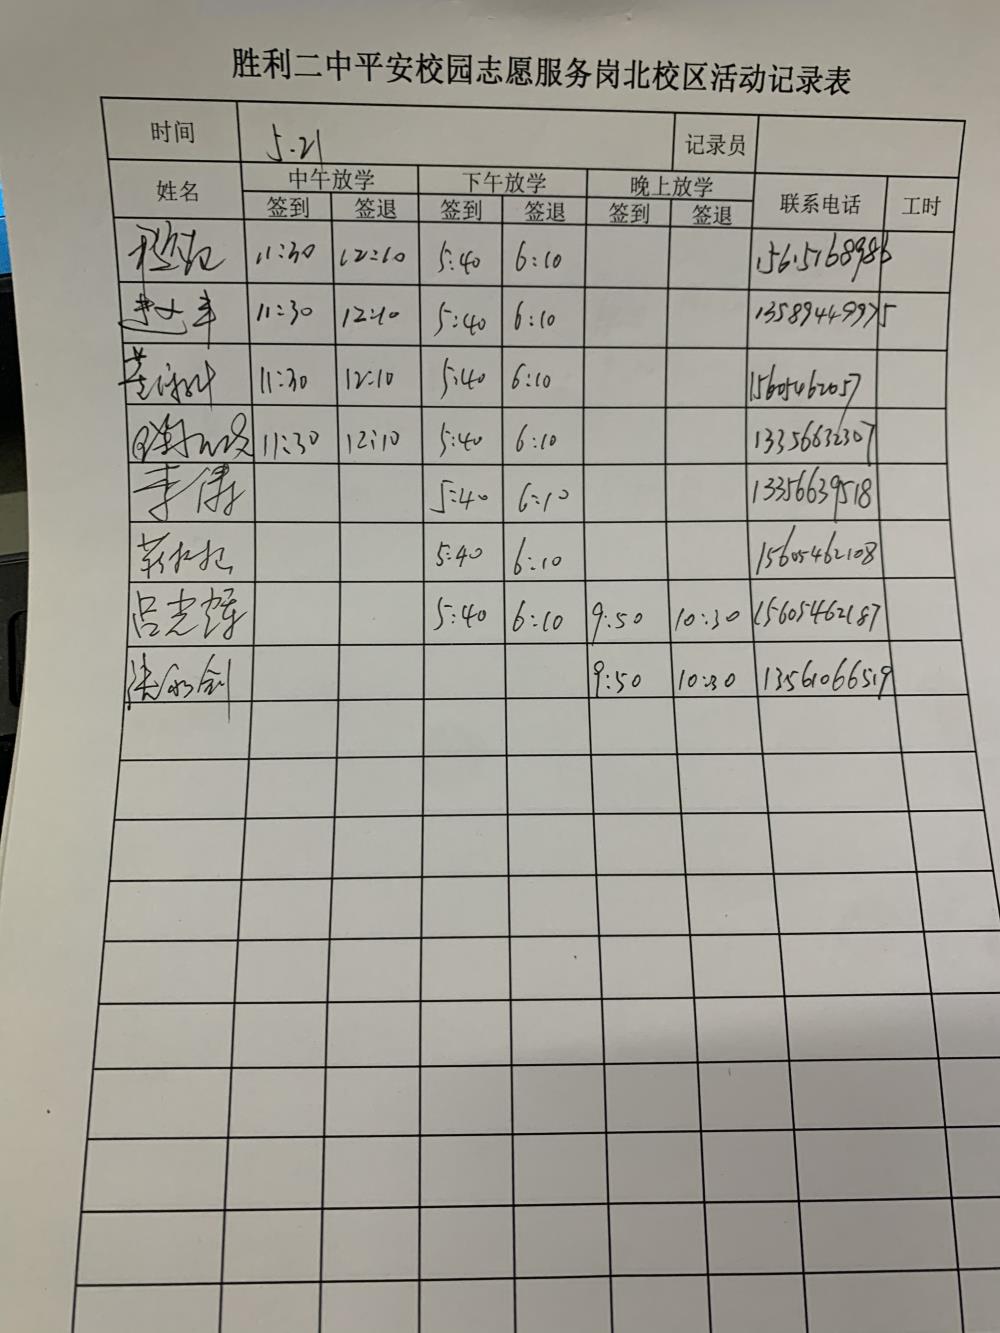 胜利二中平安校园志愿服务岗北校区活动记录表
时间 5.21 记录员
姓名 中午放学 下午放学 晚上放学 联系电话 工时
签到 签退 签到 签退 签到 签退
11:30 12:10 5:40 6:10 15615168986
11:30 12:10 5:40 6:10 13589449975
11:30 12:10 5:40 6:10 15605462057
11:30 12:10 5:40 6:10 13356632307
李涛 5:40 6:10 13356639518
5:40 6:10 15605462108
吕光辉 5:40 6:10 9:50 10:30 15605462187
9:50 10:30 13561066519